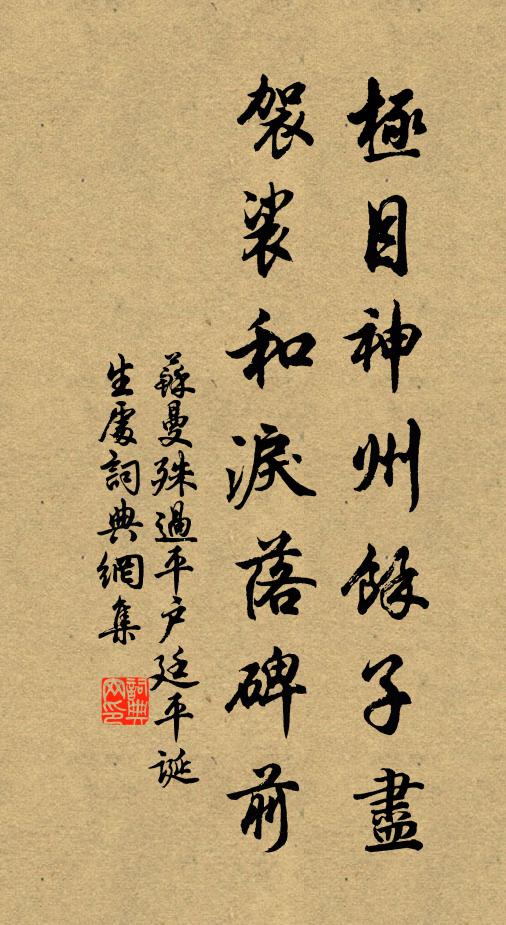 極目神州餘子盡
袈裟和淚落碑前
蘇曼殊過平戶廷平誕
生處詞典網集
詞典網印